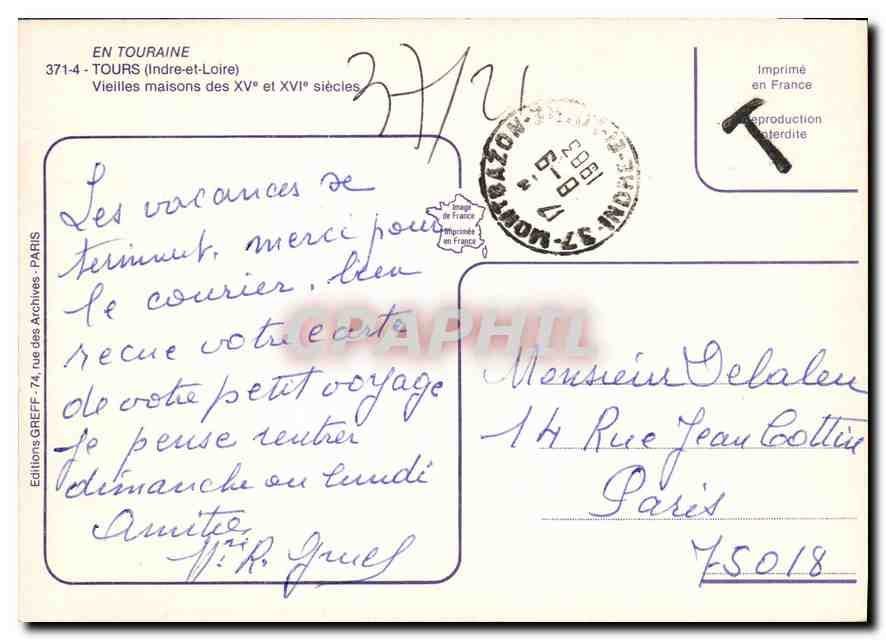 EN TOURAINE
371-4 - TOURS (Indre-et-Loire)
Vieilles maisons des XVe et XVIe siècles
37/21
Imprimé
en France
Reproduction
interdite
37-MONTBAZON-
INDRE-ET-LOIRE
17 H
6-8
1983
Image
de France
Imprimée
en France
Les vacances se
terminent. merci pour
le courier. bien
recue votre carte
de votre petit voyage
Je pense rentrer
dimanche ou lundi
Amitiés
R.
Monsieur Delaleu
14 Rue Jean Cottin
Paris
75018
Editions GREFF - 74, rue des Archives - PARIS
CPAPHIL